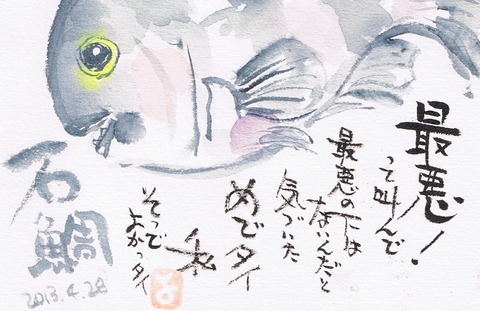 最悪!
って叫んで
最悪の下には
ないんだと
気づいた
めでタイ
私
そってよかっタイ
石鯛
2013.4.28